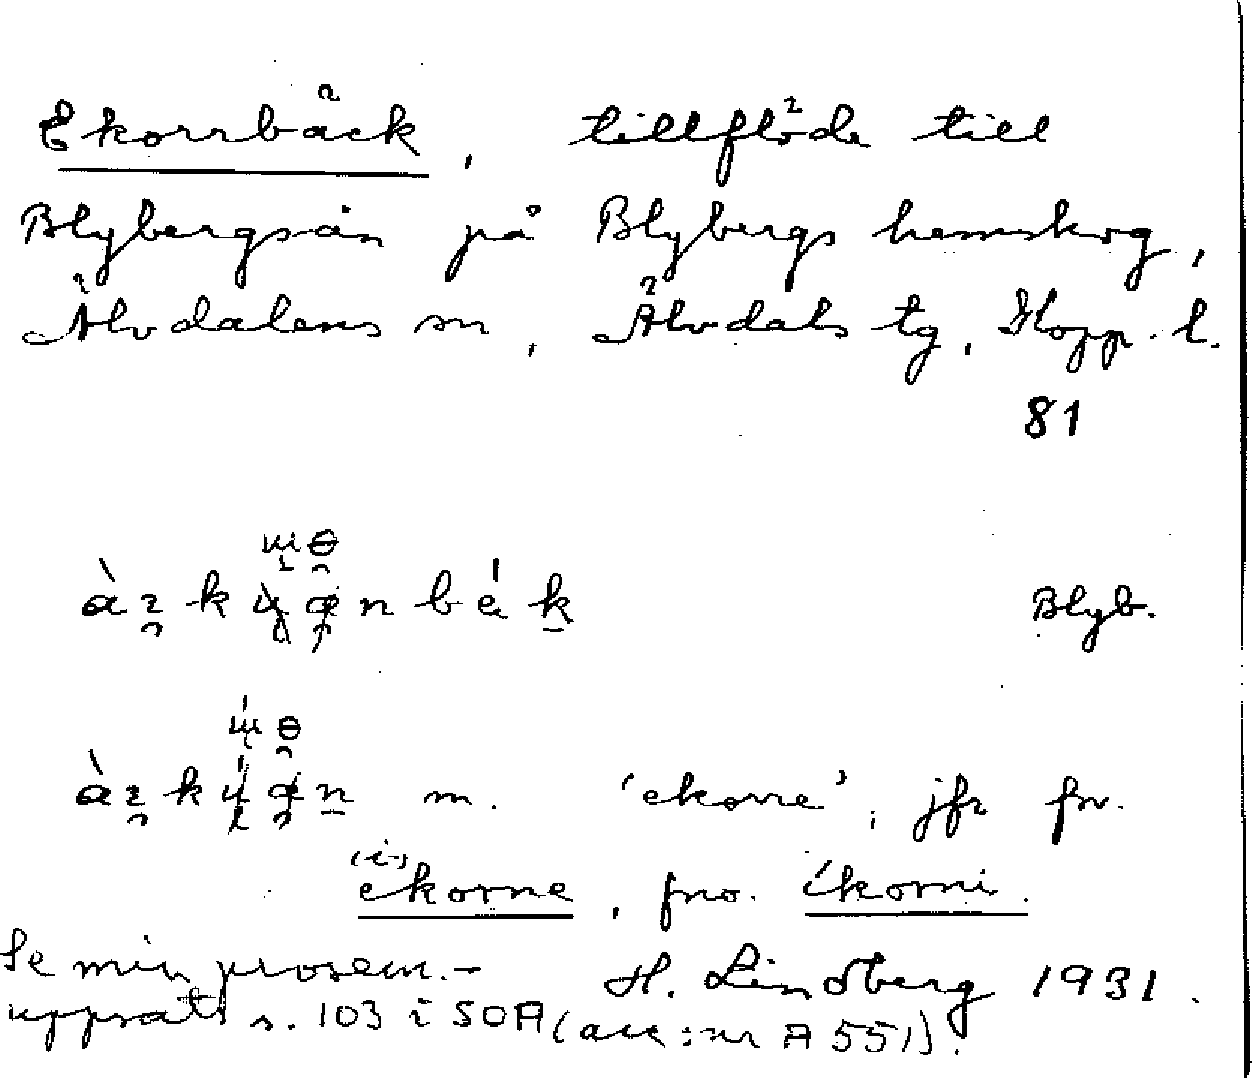 Ekorrbäck, tillflöde till
Blybergsån på Blybergs hemskog,
Älvdalens sn, Älvdals tg, Kopp. l.
81
Blyb.
m. 'ekorre', jfr fsv.
(i-)
ekorne, fno. íkorni.
Se min prosem.-
H. Lindberg 1931.
uppsats s. 103 i SOA (acc:nr A 551).